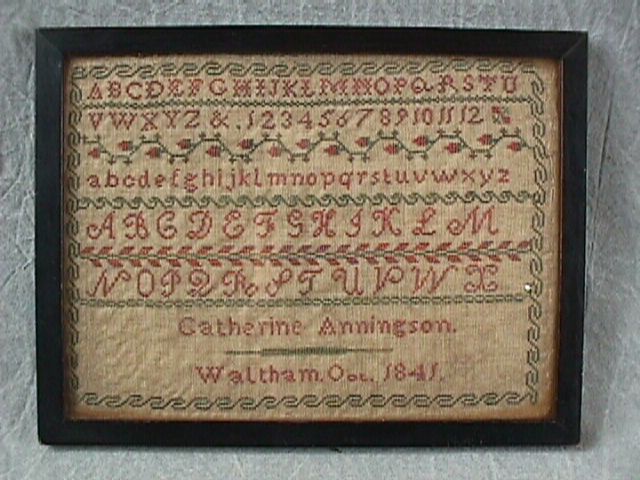 ABCDEFGHIJKLMNOPQRSTU
VWXYZ &. 123456789101112
abcdefghijklmnopqrstuvwxyz
ABCDEFGHIKLM
NOPQRSTUVWX
Catherine Anningson.
Waltham. Oct. 1841.